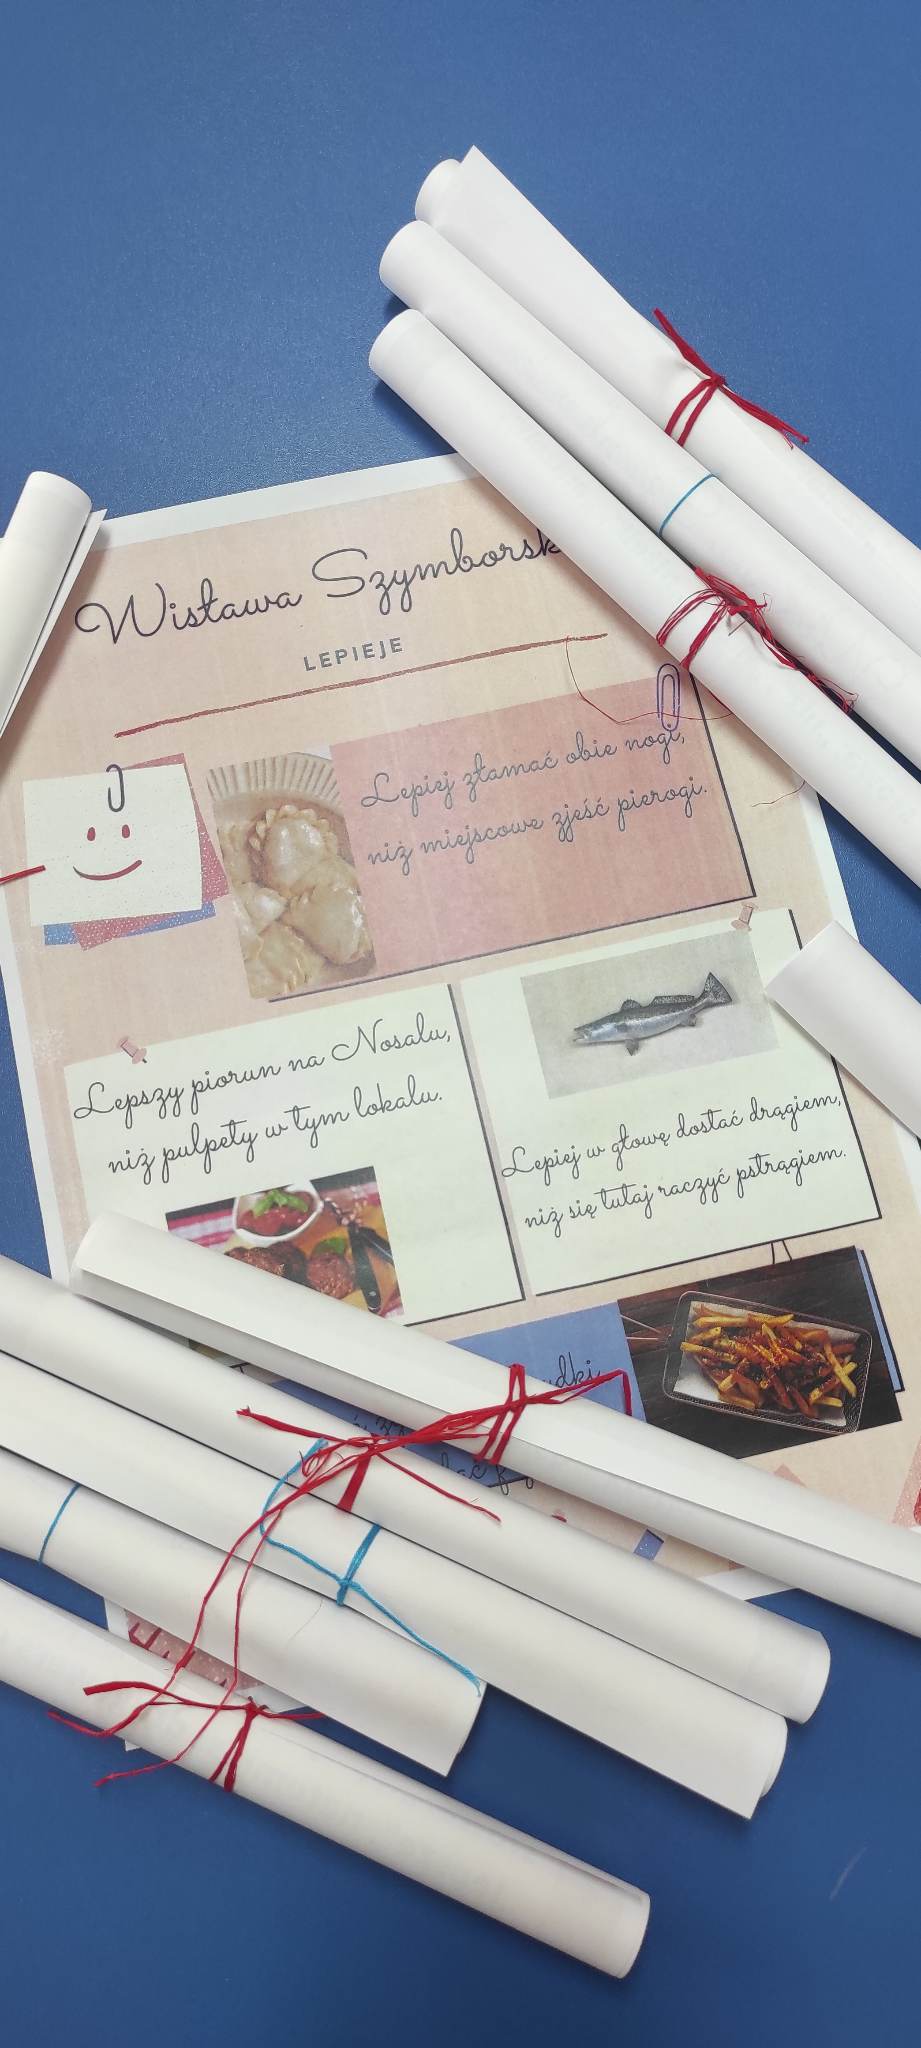 Wisława Szymborsk
LEPIEJE
Lepiej złamać obie nogi,
niż miejscowe zjeść pierogi.
Lepszy piorun na Nosalu,
niż pulpety w tym lokalu.
Lepiej w głowę dostać drągiem,
niż się tutaj raczyć pstrągiem.